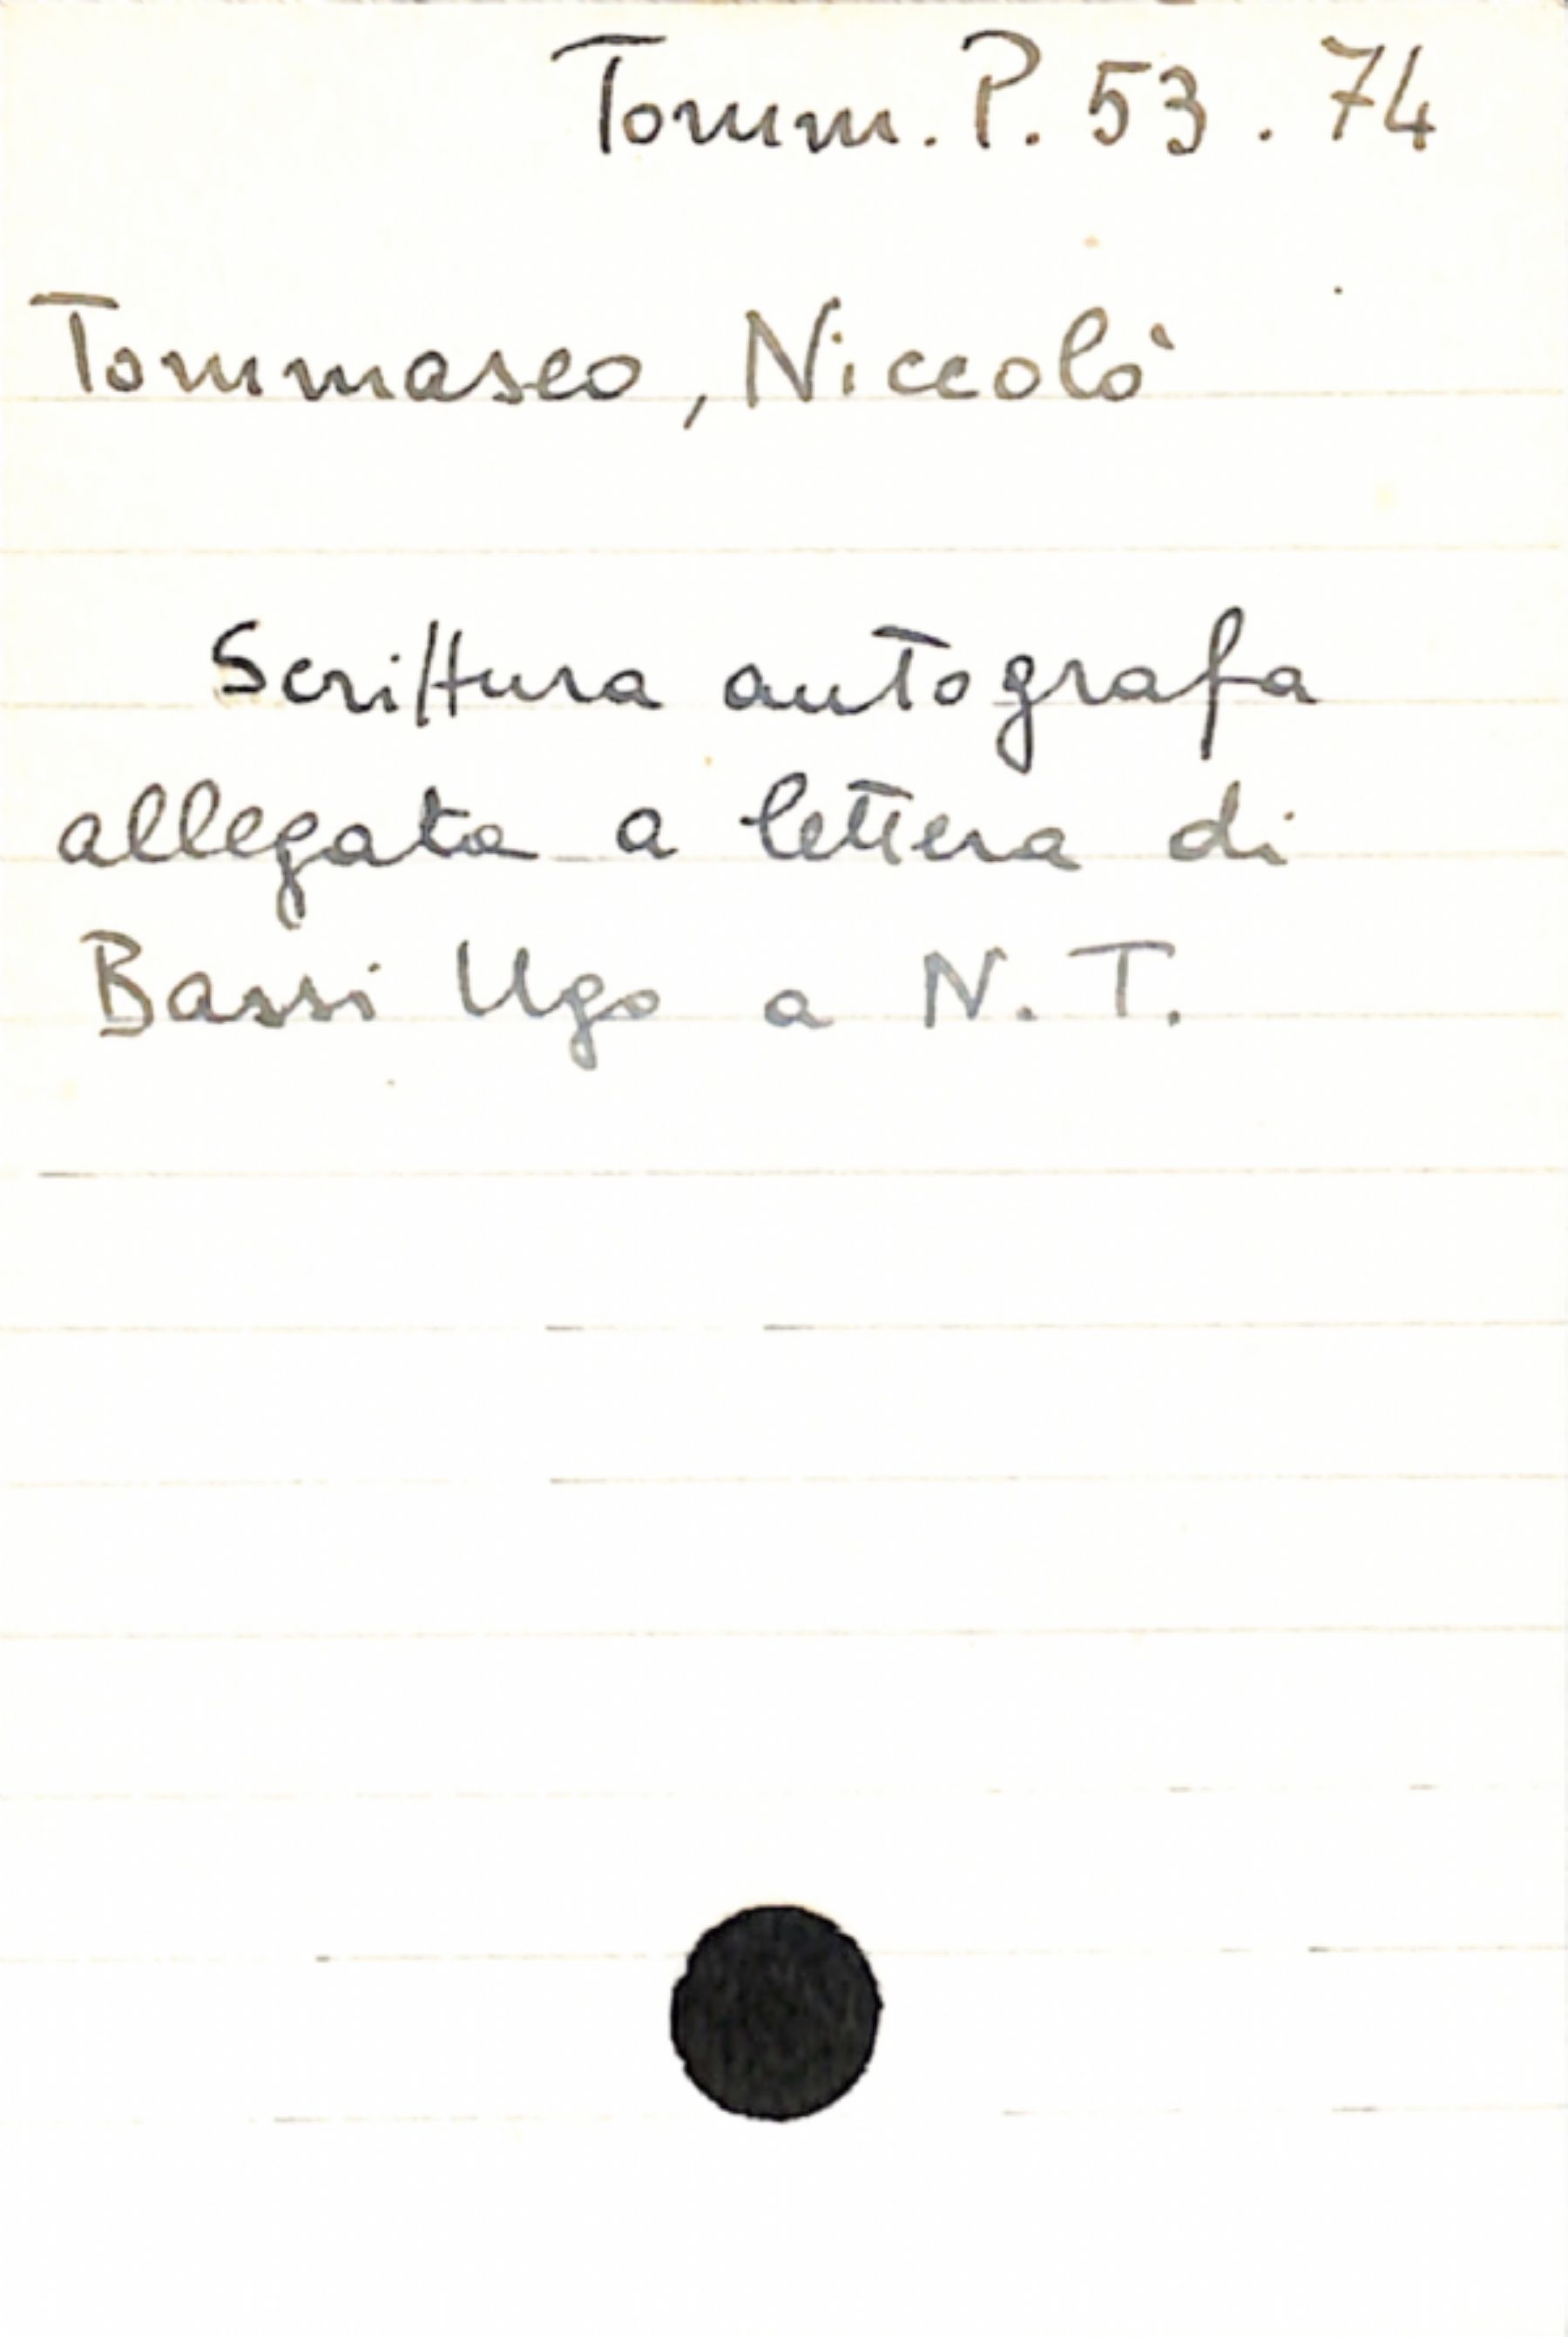 Tomm. P. 53. 74
Tommaseo, Niccolò
Scrittura autografa
allegata a lettera di
Bassi Ugo a N. T.